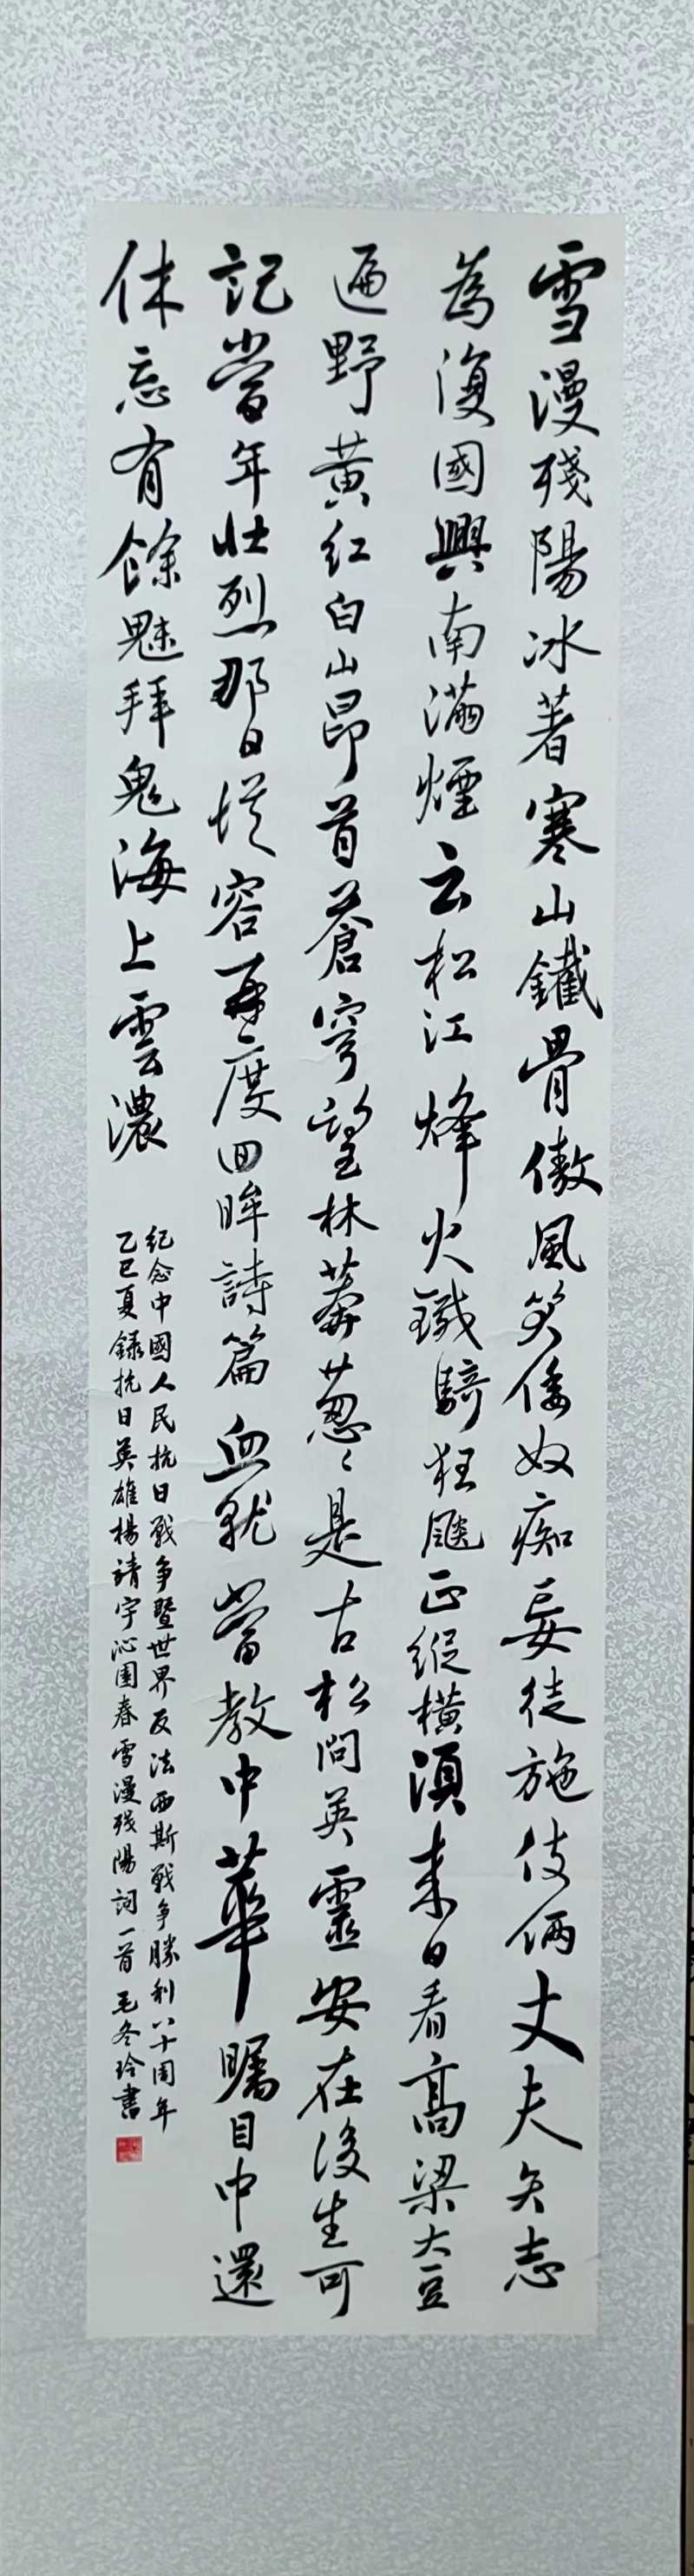 雪漫殘陽冰著寒山鐵骨傲風笑倭奴痴妄徒施伎倆丈夫矢志
為復國興南滿煙云松江烽火鐵騎狂飈正縱橫須來日看高梁大豆
遍野黃红白山昂首蒼穹望林莽葱〻是古松問英靈安在後生可
記當年壯烈那日從容再度回眸詩篇血就當教中華矚目中還
休忘有餘魅拜鬼海上雲濃
纪念中國人民抗日戰争暨世界反法西斯戰争勝利八十周年
乙巳夏録抗日英雄楊靖宇沁園春雪漫殘陽詞一首毛冬玲書